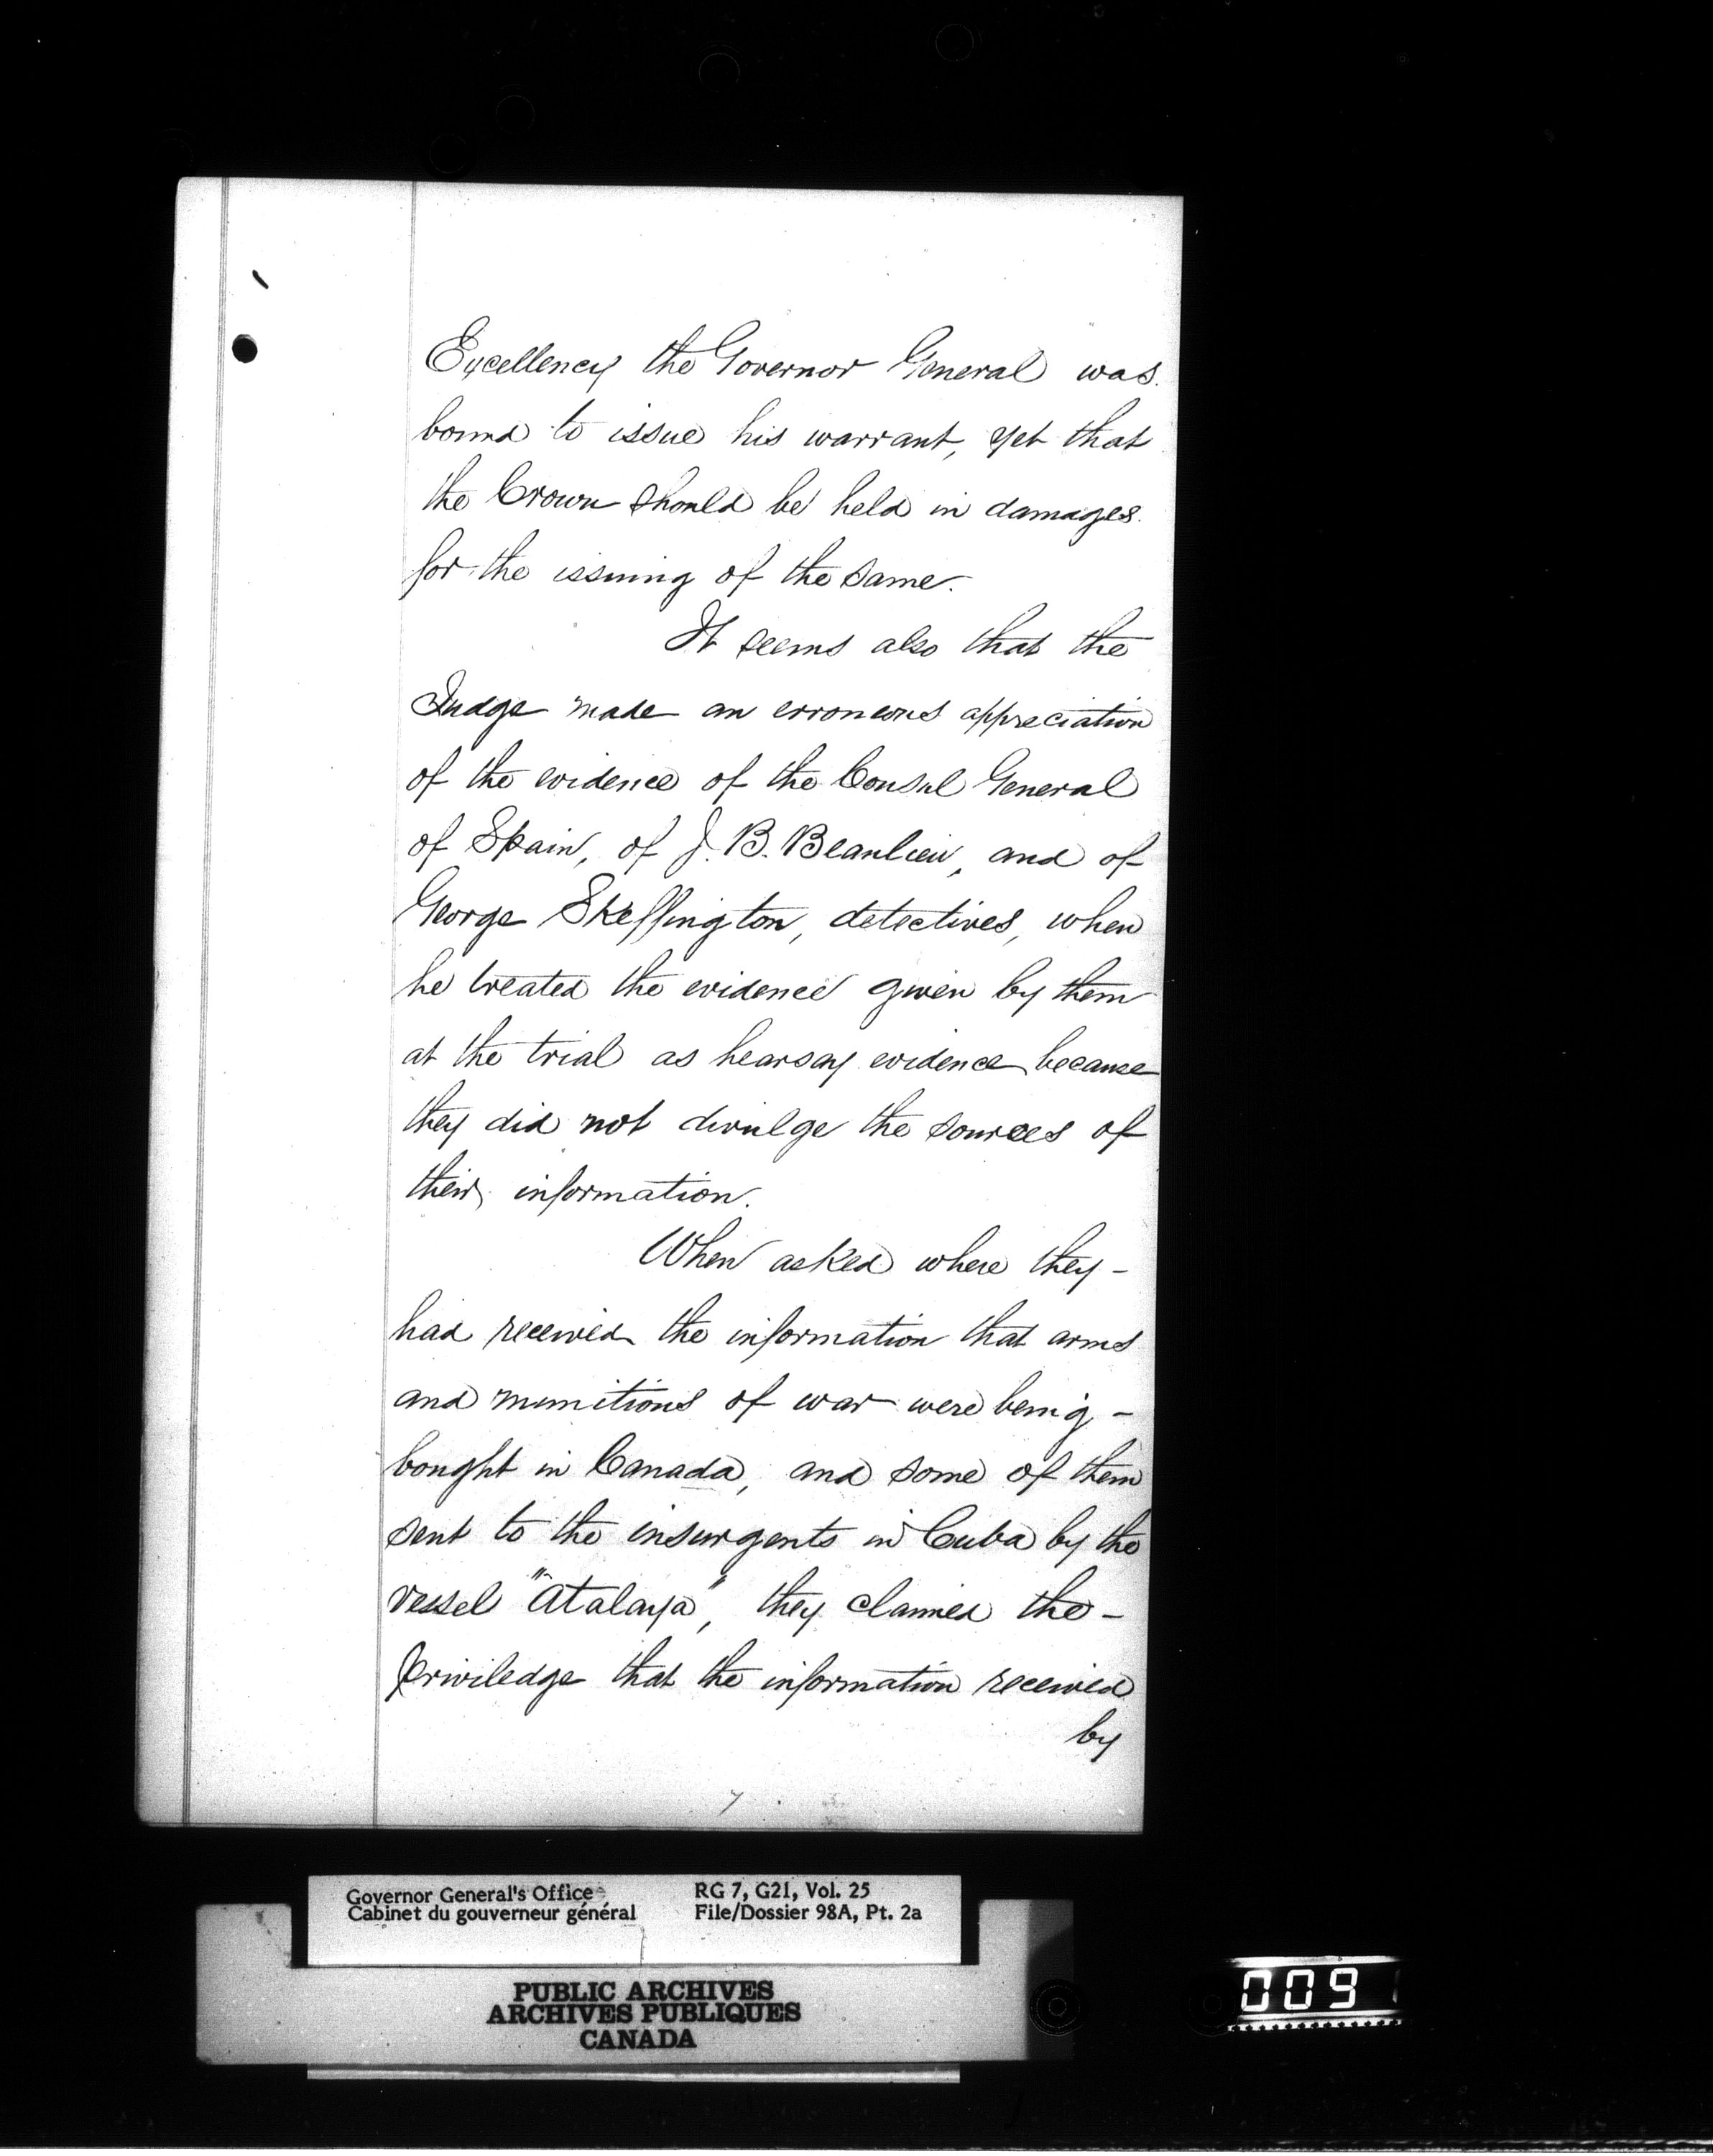 Excellency the Governor General was
bound to issue his warrant, yet that
the Crown should be held in damages
for the issuing of the same.
It seems also that the
Judge made an erroneous appreciation
of the evidence of the Consul General
of Spain, of J. B. Beaulieu, and of
George Skeffington, detectives, when
he treated the evidence given by them
at the trial as hearsay evidence because
they did not divulge the sources of
their information.
When asked where they -
had received the information that arms
and munitions of war were being -
bought in Canada, and some of them
sent to the insurgents in Cuba by the
vessel "Atalaya", they claimed the -
priviledge that the information received
by
7
Governor General's Office
Cabinet du gouverneur général
RG 7, G21, Vol. 25
File/Dossier 98A, Pt. 2a
PUBLIC ARCHIVES
ARCHIVES PUBLIQUES
CANADA
009